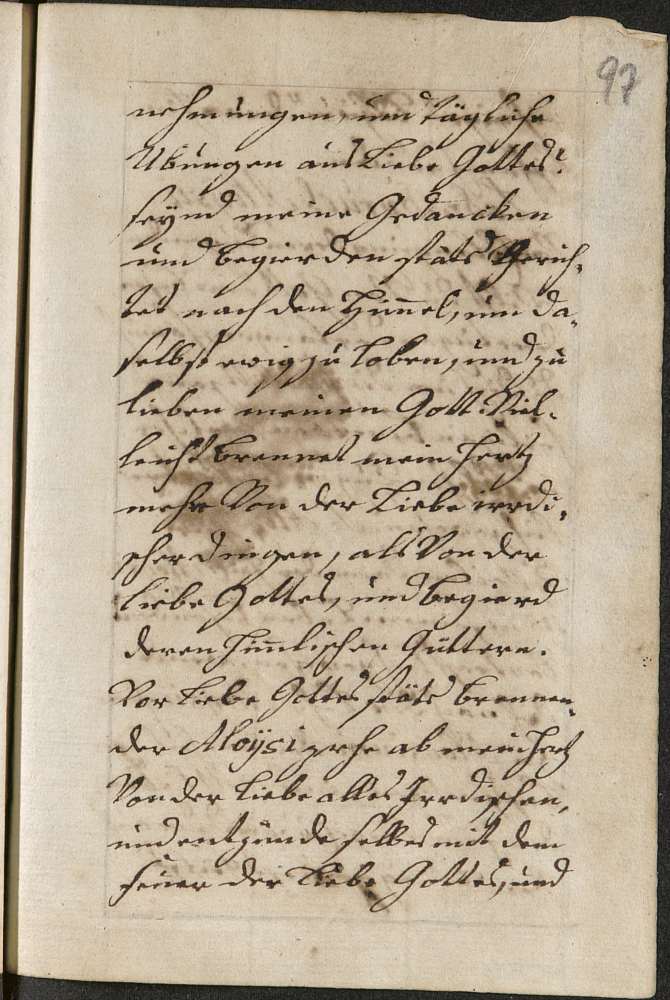 97
nehmungen, und tägliche
Übungen aus Liebe Gottes?
seynd meine Gedancken
und begierden stäts gerich-
tet nach den Himel, um da-
selbst ewig zu loben, und zu
lieben meinen Gott. Viel-
leicht brennet mein Hertz
mehr Von der Liebe irrdi-
scher dingen, als Von der
liebe Gottes, und begierd
deren Himlischen Gütteren.
Vor Liebe Gottes stäts brennen-
der Aloÿsi ziehe ab mein Hertz
Von der Liebe alles Irrdischen,
und entzünde selbes mit dem
Feuer der Liebe Gottes, und